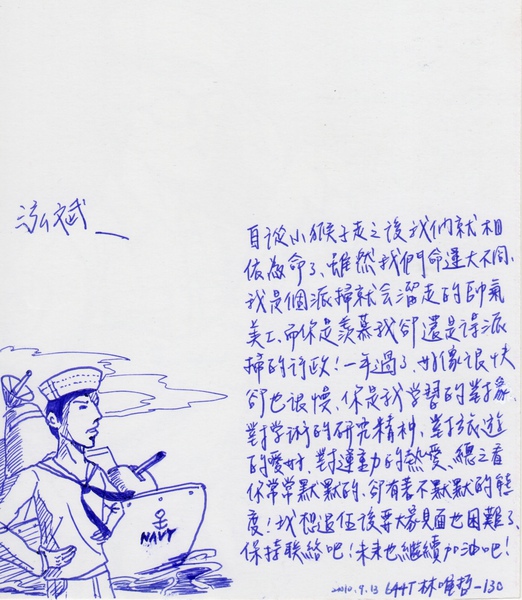 泓斌
自從小猴子走之後我們就相
依為命了、雖然我們命運大不同、
我是個派掃就会溜走的帥氣
美工、而你是羨慕我卻還是得派
掃的行政!一年過了、好像很快
卻也很慢、你是我学習的對象、
對学術的研究精神、對旅遊
的愛好、對運動的熱愛、總之看
你常常默默的、卻有著不默默的態
度!我想退伍後要大家見面也困難了、
保持聯絡吧!未來也繼續加油吧!
NAVY
2010.9.13 644T 林唯哲-130